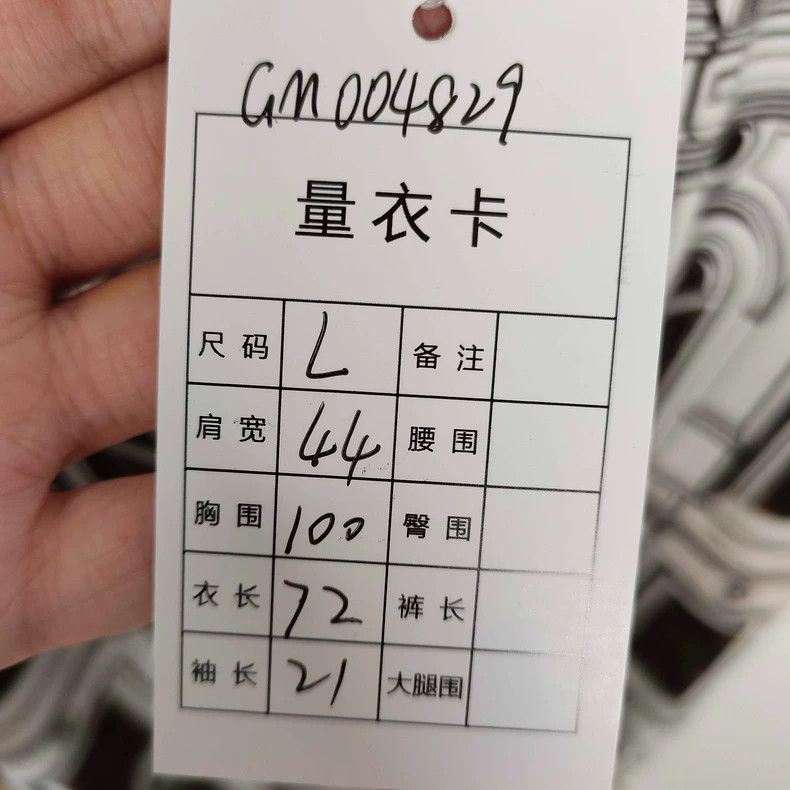 GM004829
量衣卡
尺码 L 备注
肩宽 44 腰围
胸围 100 臀围
衣长 72 裤长
袖长 21 大腿围